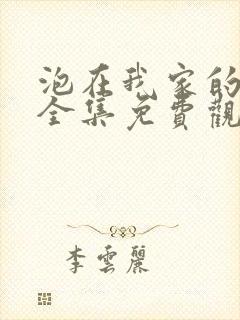 泡在我家的
全集免費觀
李雲麗